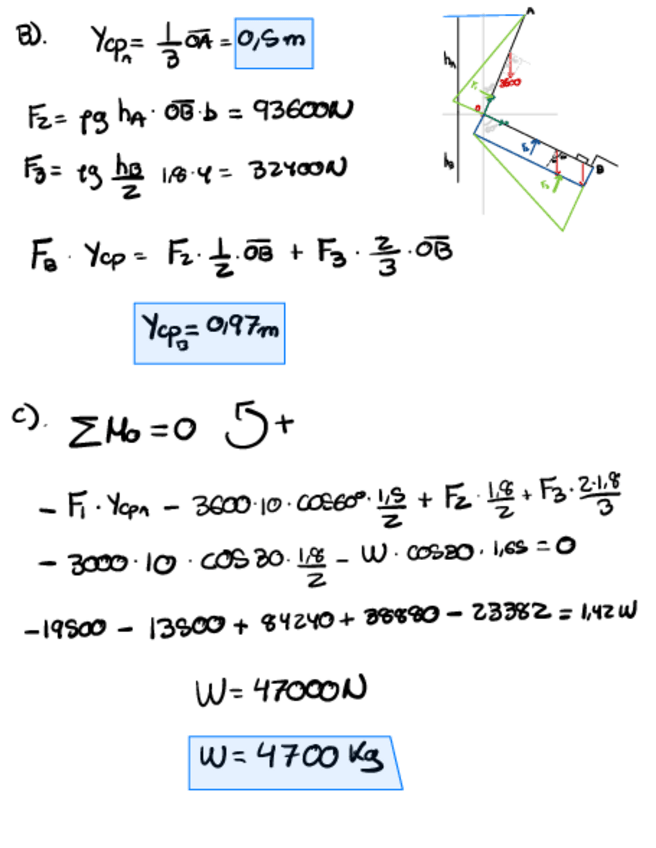 B). Ycp_A = 1/3 OA = 0,5m
F2 = ρg hA · OB · b = 93600N
F3 = ρg hB/2 1,8·4 = 32400N
FB · Ycp = F2 · 1/2 · OB + F3 · 2/3 · OB
Ycp_B = 0,97m
c). ΣMo = 0 +
- F1 · Ycp_A - 3600·10·cos60° · 1,5/2 + F2 · 1,8/2 + F3 · 2·1,8/3
- 3000·10 · cos 30 · 1,8/2 - W · cos30 · 1,65 = 0
-19500 - 13500 + 84240 + 38880 - 23382 = 1,42W
W = 47000N
W = 4700 Kg
A
hA
3600
O
hB
B